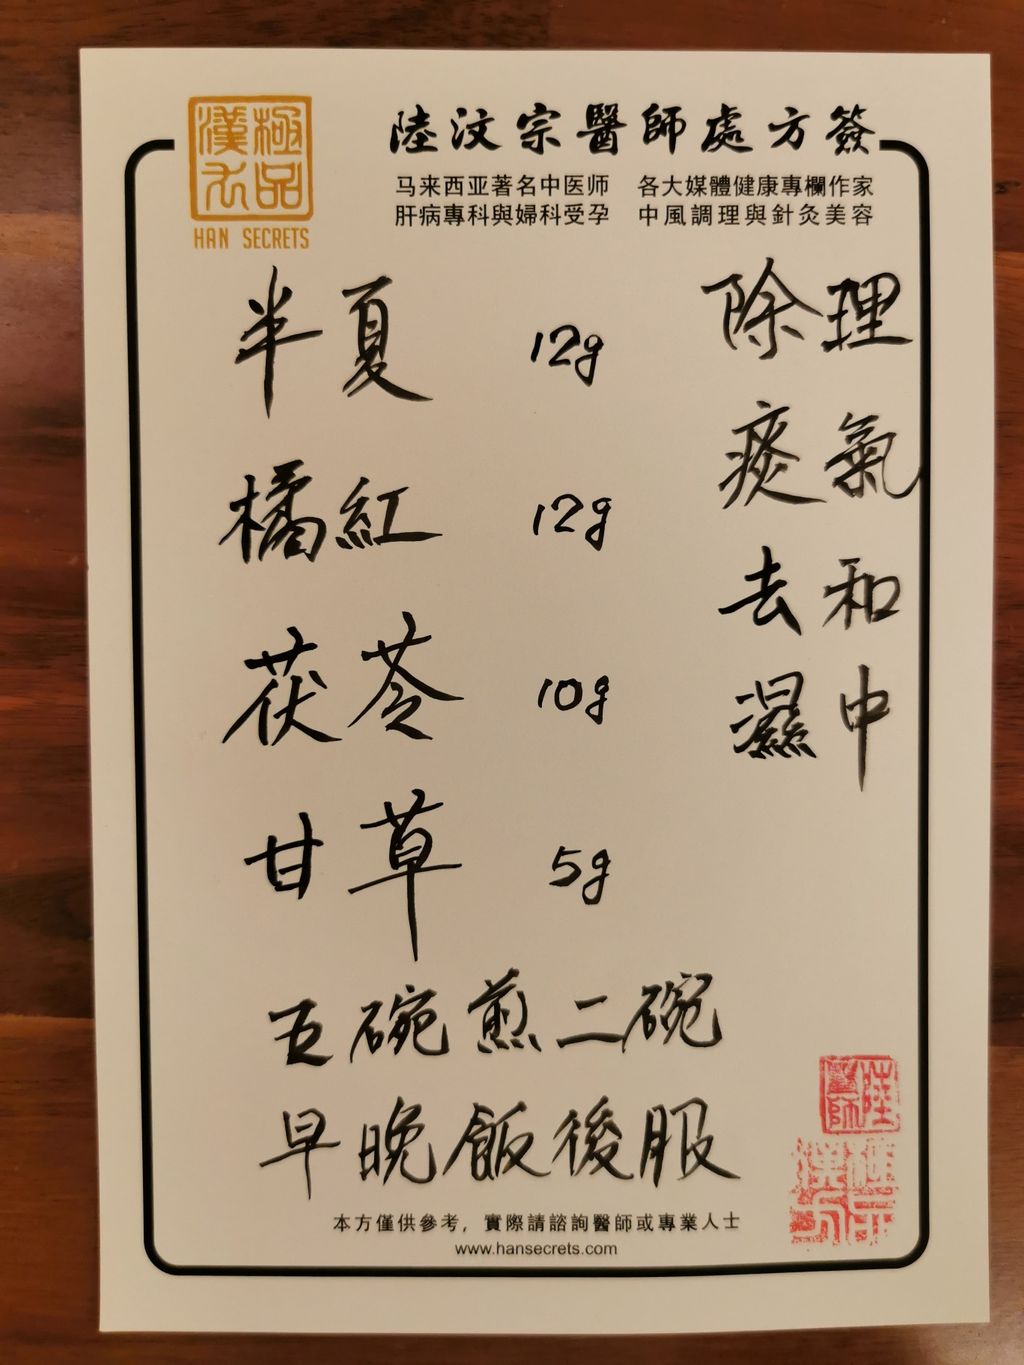 極品
漢方
HAN SECRETS
陸汶宗醫師處方簽
马来西亚著名中医师 各大媒體健康專欄作家
肝病專科與婦科受孕 中風調理與針灸美容
理氣和中
除痰去濕
半夏 12g
橘紅 12g
茯苓 10g
甘草 5g
五碗煎二碗
早晚飯後服
陸
醫師
極品
漢方
本方僅供參考，實際請諮詢醫師或專業人士
www.hansecrets.com